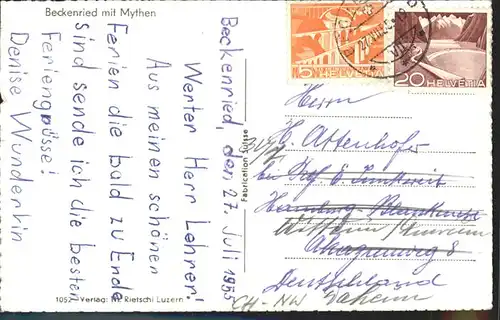 Beckenried mit Mythen
Beckenried, den 27. Juli 1955
Werter Herr Lehrer!
Aus meinen schönen
Ferien die bald zu Ende
sind sende ich die besten
Feriengrüsse!
Denise Wunderkin
1052 Verlag: Rietschi Luzern
Fabrication Suisse
5 HELVETIA
20 HELVETIA
Herrn
C. Attenhofer
bei
Hamburg-Blankenese
8
Deutschland
CH-NW